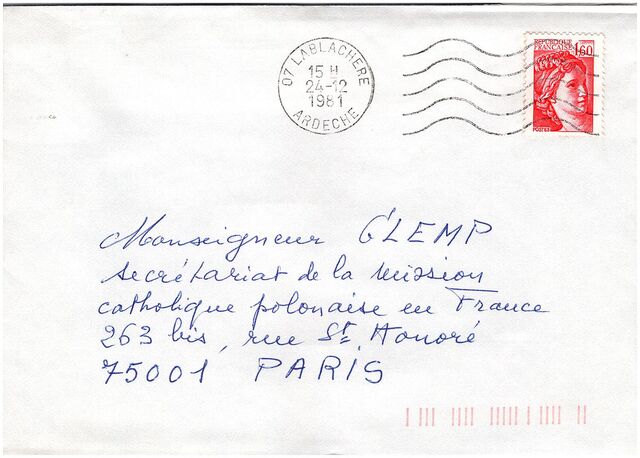 07 LABLACHERE
15 H
24-12
1981
ARDECHE
REPUBLIQUE
FRANÇAISE
1,60
POSTES
Monseigneur GLEMP
secrétariat de la mission
catholique polonaise en France
263 bis, rue St. Honoré
75001 PARIS